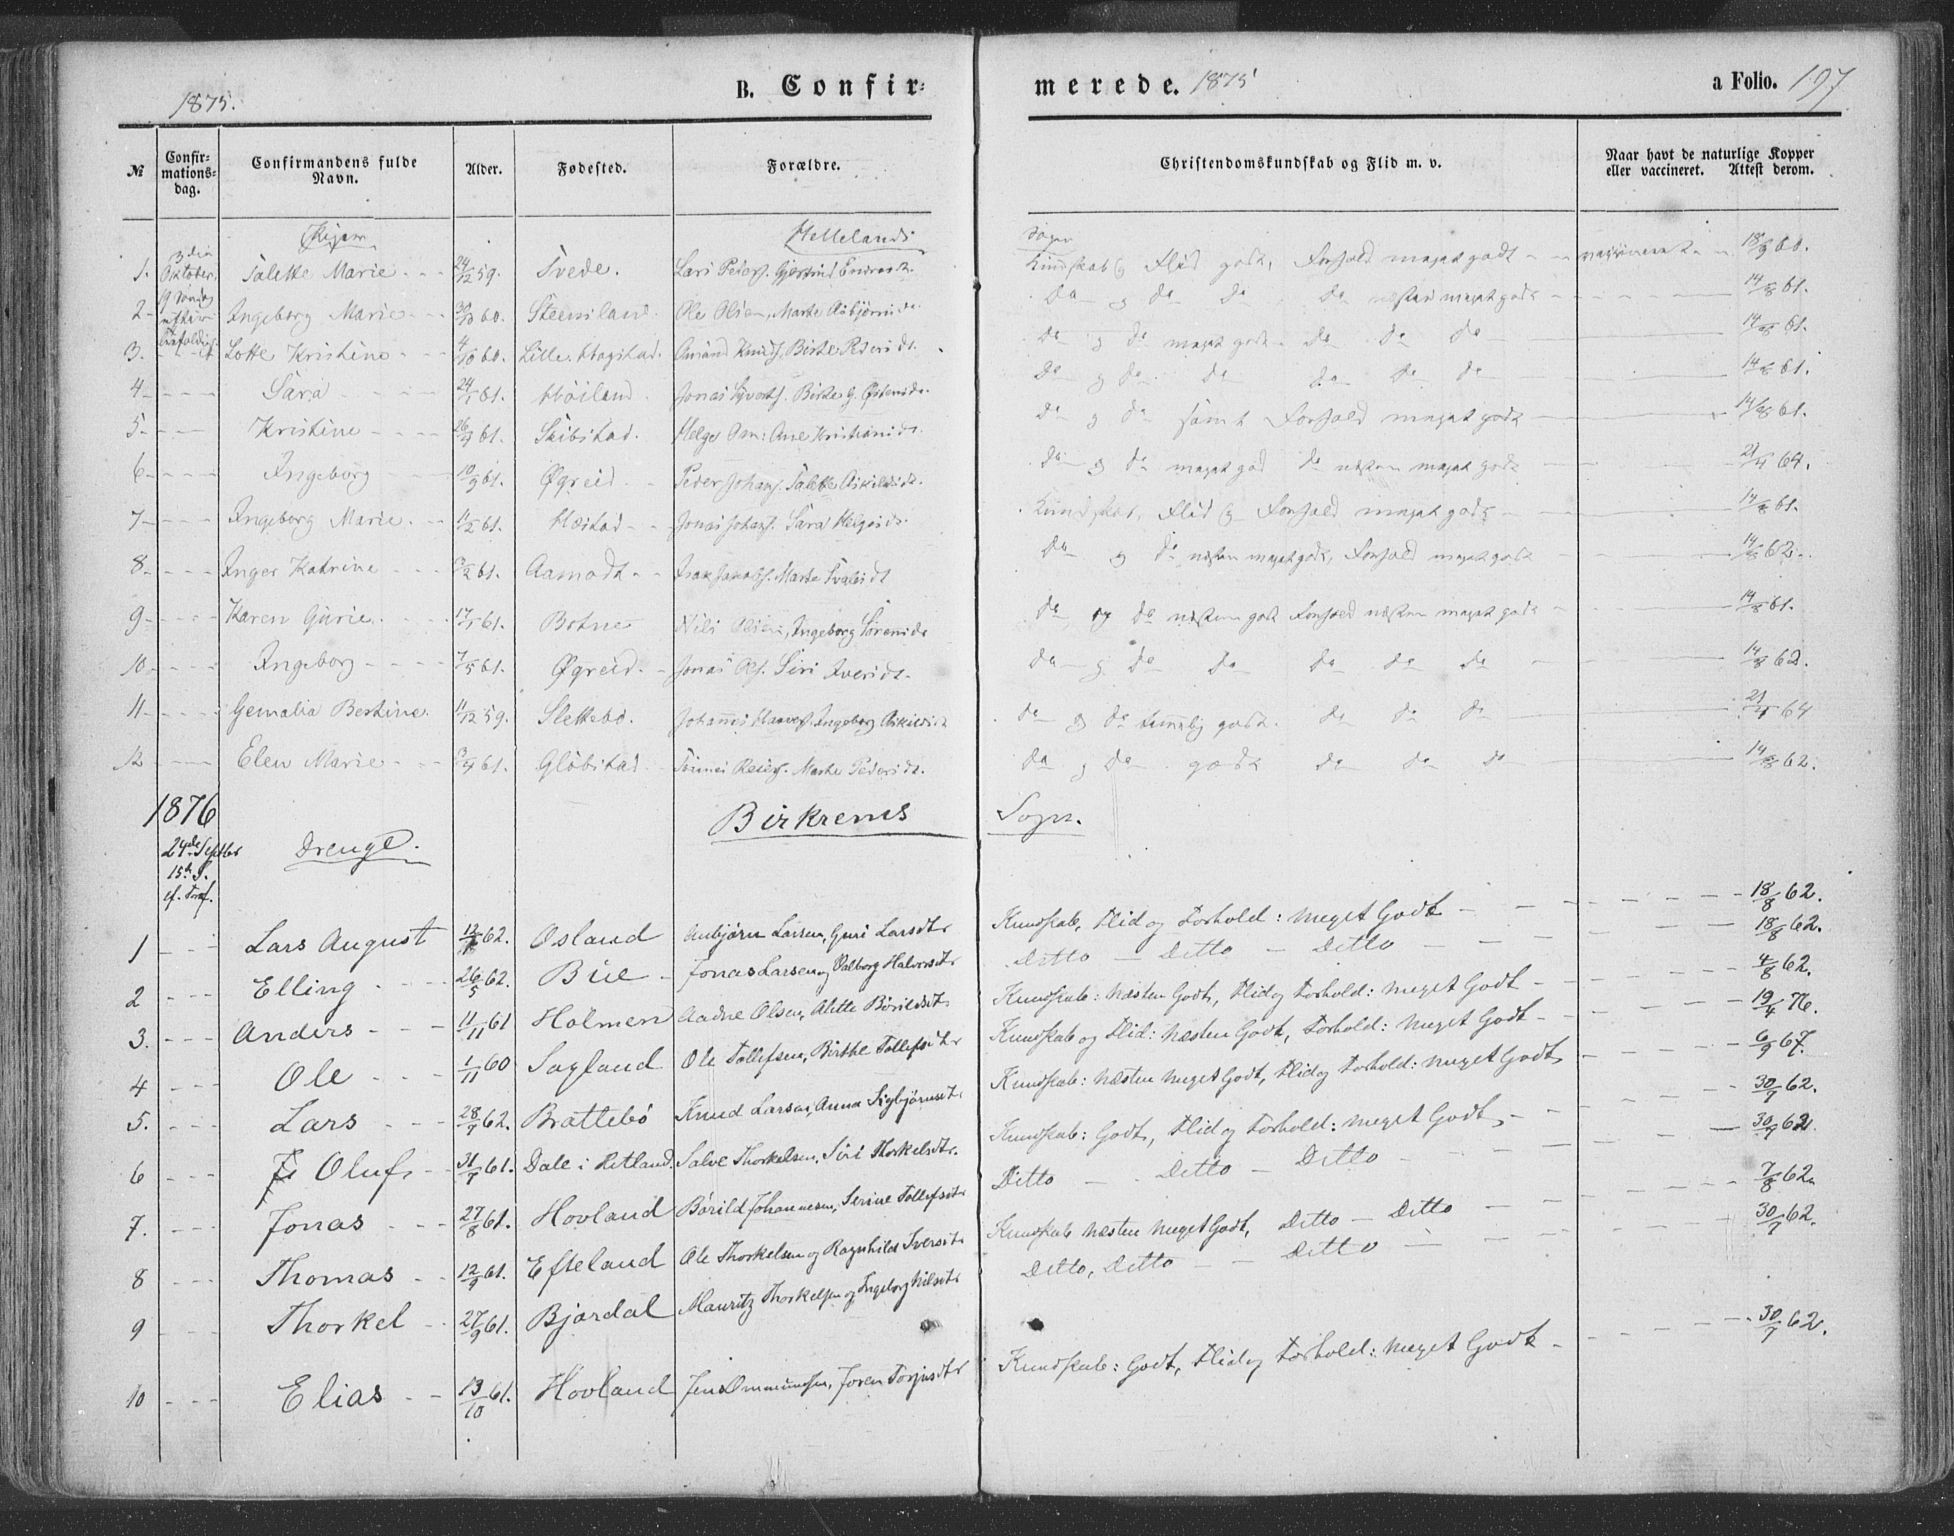 1875.
B. Confir-
merede. 1875
a Folio. 197
№
Confir-mations-dag.
Confirmandens fulde Navn.
Alder.
Fødested.
Forældre.
Christendomskundskab og Flid m. v.
Naar havt de naturlige Kopper eller vaccineret. Attest derom.
Piger
Hellelands
Sogn
3die Oktober
1. Talette Marie 24/12 59. Tvede. Lars Peders. Gjertrud Kundskab og Flid godt, Forhold meget godt vaccineret 60.
2 Ingeborg Marie 60. Steensland Ole Olsen, Marte Asbjørnsd. Do og do do do næsten meget godt 14/8 61.
3. Lotte Kristine 4/10 60. Lille Hegstad. Amund Knuds. Birte Pedersdt. Do og do meget godt do do do 14/8 61.
4 Sara 24/1 61. Høiland Jonas Siverts. Birte G. Østensdt. Do og do do do do do 14/8 61.
5 Kristine 61. Skibstad. Helge Om: Ane Kristiansdt. Do og do samt Forhold meget godt 14/8 61.
6 Ingeborg 10/9 61. Øgreid Peder Johans. Talette Askildsdt. Do og do meget god do næsten meget godt 21/4 64.
7 Ingeborg Marie. 11/2 61. Hæstad Jonas Johans. Sara Helgesdt. Kundskab, Flid og Forhold meget godt 14/8 61.
8 Inger Katrine 61. Aamodt Isak Jakobs. Marte Do og do næsten meget godt, Forhold meget godt 14/8 62.
9 Karen Gurie 17/1 61. Botne Nils Olsen, Ingeborg Sørensdt Do og do næsten godt Forhold næsten meget godt 14/8 61.
10 Ingeborg 7/5 61. Øgreid. Jonas Ols. Siri Iversdt. Do og do do do do do 14/8 62.
11 Gemalia Bertine. 11/12 59. Slettebø. Johannes Ingeborg Askildsdt Do og do temmelig godt. do do do 21/4 64
12 Elen Marie 61. Gløbstad Tønnes Marte Pedersdt. Do og do godt do do do 14/8 62.
1876
Birkrems Sogn.
24de Septber 15de S. ef. Tref.
Drenge.
1 Lars August 62. Osland Anbjørn Larsen, Guri Larsdtr Kundskab, Flid og Forhold: Meget Godt 18/8 62.
2 Elling 26/5 62. Bue Jonas Larsen og Valborg Halvorsdtr Ditto Ditto Ditto 18/8 62.
3. Anders 11/11 61 Holmen Aadne Olsen, Alette Børildsdtr Kundskab: Næsten Godt, Flid og Forhold: Meget Godt 4/8 62.
4 Ole 1/11 60 Sagland Ole Tollefsen, Birthe Tollefsdtr Kundskab og Flid: Næsten Godt, Forhold: Meget Godt 19/4 76.
5. Lars 28/7 62. Brattebø Knud Larsen, Anna Sigbjørnsdtr. Kundskab: Næsten Meget Godt, Flid og Forhold: Meget Godt 6/9 67.
6 Oluf 31/7 61. Dale i Retland. Salve Thorkelsen, Siri Thorkelsdtr. Kundskab: Godt, Flid og Forhold: Meget Godt 30/7 62.
7. Jonas 27/8 61. Hovland Børild Johannesen, Serine Tollefsdtr Ditto Ditto Ditto 30/7 62.
8 Thomas 12/9 61. Efteland Ole Thorkelsen og Ragnhild Iversdtr Kundskab Næsten Meget Godt, Ditto Ditto 7/8 62.
9 Thorkel 27/9 61. Bjordal Mauritz Thorkelsen og Ingeborg Nilsdtr Ditto, Ditto Ditto 30/7 62.
10 Elias 13/10 61. Hovland Jens Ommundsen, Joren Torjusdtr Kundskab: Godt, Flid og Forhold: Meget Godt 30/7 62.